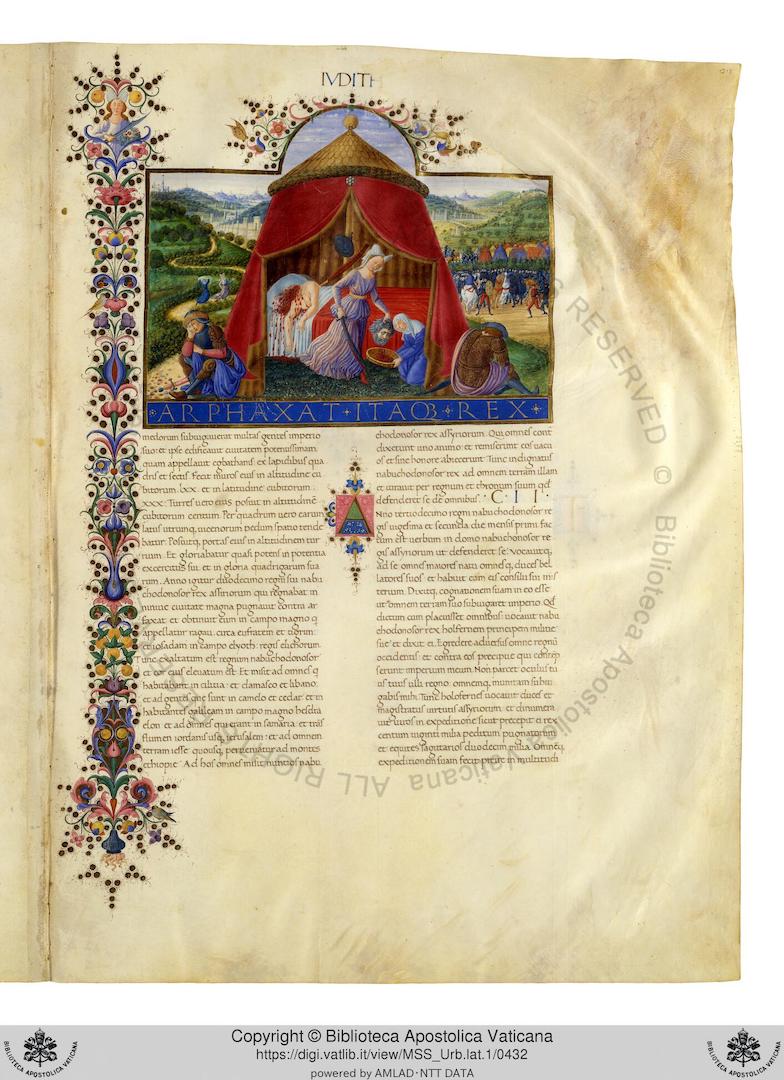 IVDITH
ARPHAXAT ITAQ3 REX
medorum subiugauerat multas gentes imperio
suo: et ipse edificauit ciuitatem potentissimam
quam appellauit egbathanis ex lapidibus qua
dris et sectis Fecit muros eius in altitudine cu
bitorum .lxx. et in latitudine cubitorum
xxx. Turres uero eius posuit in altitudinē
cubitorum centum. Per quadrum uero earum
latus utrunq; uicenorum pedum spatio tende
batur. Posuitq; portas eius in altitudinem tur
rium. Et gloriabatur quasi potens in potentia
excercitus sui et in gloria quadrigarum sua
rum. Anno igitur duodecimo regni sui nabu
chodonosor rex assiriorum qui regnabat in
niniue ciuitate magna pugnauit contra ar
faxat et obtinuit eum in campo magno q
appellatur ragau. circa eufratem et tigrim:
et iosadam in campo elyoth: regis elichorum
Tunc exaltatum est regnum nabuchodonosor
et cor eius eleuatum est. Et misit ad omnes q
habitabant in cilitia: et damasco et libano:
et ad gentes que sunt in carmelo et cedar: et in
habitantes galileam in campo magno hesdra
elon et ad omnes qui erant in samaria: et trās
flumen iordanis usq; ierusalem: et ad omnem
terram iesse quousq; perueniatur ad montes
ethiopie. Ad hos omnes misit nuntios nabu
chodonosor rex assyriorum. Qui omnes cont
dixerunt uno animo: et remiserunt eos uacu
os et sine honore abiecerunt Tunc indignatus
nabuchodonosor rex ad omnem terram illam
et iurauit per regnum et thronum suum qd
defenderet se de omnibus. C. II.
Nno tertiodecimo regni nabuchodonosor re
gis uigesima et secunda die mensis primi fac
tum est uerbum in domo nabuchonosor re
gis assyriorum ut defenderet se. Vocauitq;
ad se omnes maiores natu omnesq; duces bel
latores suos et habuit cum eis consilii sui mis
terium. Dixitq; cogitationem suam in eo esse
ut omnem terram suo subiugaret imperio. Qd
dictum cum placuisset omnibus uocauit nabu
chodonosor rex holfernem principem militie
sue et dixit ei. Egredere aduersus omne regnū
occidentis et contra eos precipue qui contēp
serunt imperium meum. Non parcet oculus tu
us ulli regno: omnemq; munitam subiu
gabis mihi. Tunc holofernes uocauit duces et
magistratus uirtutis assyriorum: et dinumera
uit uiros in expeditione sicut precepit ei rex
centum uiginti milia peditum pugnatorum
et equites sagittarios duodecim milia. Omnēq;
expeditionem suam fecit preire in multitudi
A
ALL RIGHTS RESERVED © Biblioteca Apostolica Vaticana
Copyright © Biblioteca Apostolica Vaticana
https://digi.vatlib.it/view/MSS_Urb.lat.1/0432
powered by AMLAD·NTT DATA
BIBLIOTECA APOSTOLICA VATICANA
BIBLIOTECA APOSTOLICA VATICANA